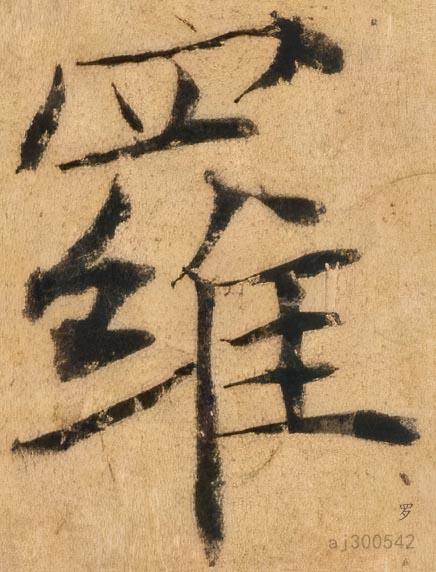 羅
罗
aj300542